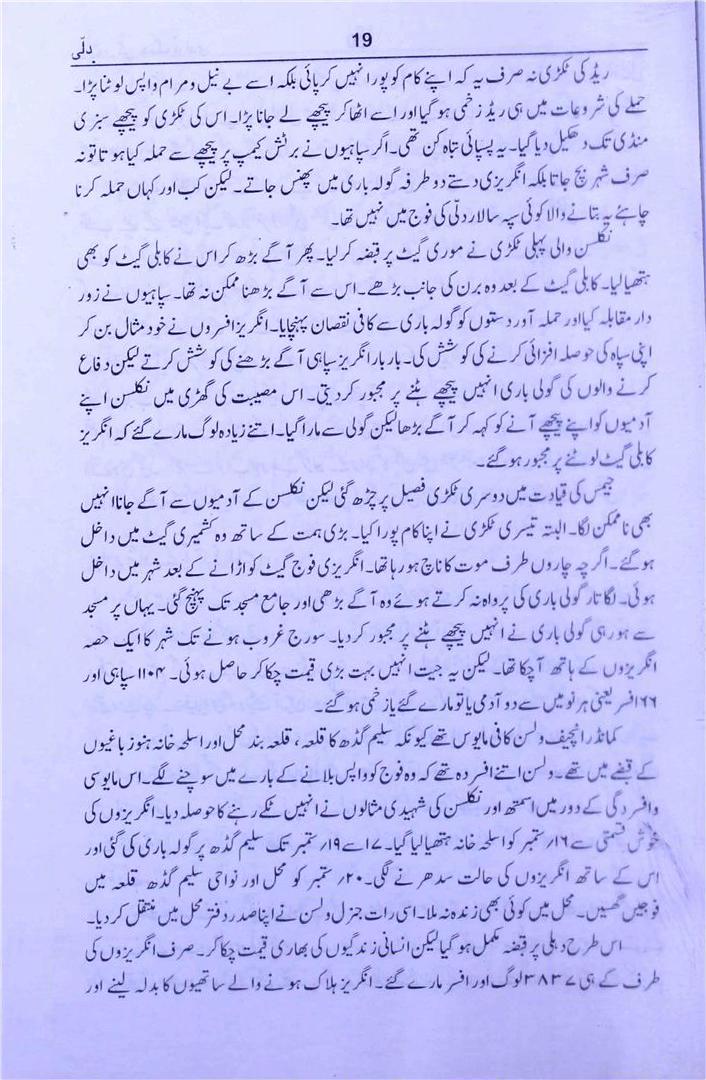 19
دلّی
ریڈ کی ٹکڑی نہ صرف یہ کہ اپنے کام کو پورا نہیں کر پائی بلکہ اسے بے نیل و مرام واپس لوٹنا پڑا۔
حملے کی شروعات میں ہی ریڈ زخمی ہو گیا اور اسے اٹھا کر پیچھے لے جانا پڑا۔ اس کی ٹکڑی کو پیچھے سبزی
منڈی تک دھکیل دیا گیا۔ یہ پسپائی تباہ کن تھی۔ اگر سپاہیوں نے برٹش کیمپ پر پیچھے سے حملہ کیا ہوتا تو نہ
صرف شہر بچ جاتا بلکہ انگریزی دستے دو طرفہ گولہ باری میں پھنس جاتے۔ لیکن کب اور کہاں حملہ کرنا
چاہئے یہ بتانے والا کوئی سپہ سالار دلّی کی فوج میں نہیں تھا۔
نکلسن والی پہلی ٹکڑی نے موری گیٹ پر قبضہ کر لیا۔ پھر آگے بڑھ کر اس نے کابلی گیٹ کو بھی
ہتھیا لیا۔ کابلی گیٹ کے بعد وہ برن کی جانب بڑھے۔ اس سے آگے بڑھنا ممکن نہ تھا۔ سپاہیوں نے زور
دار مقابلہ کیا اور حملہ آور دستوں کو گولہ باری سے کافی نقصان پہنچایا۔ انگریز افسروں نے خود مثال بن کر
اپنی سپاہ کی حوصلہ افزائی کرنے کی کوشش کی۔ بار بار انگریز سپاہی آگے بڑھنے کی کوشش کرتے لیکن دفاع
کرنے والوں کی گولی باری انہیں پیچھے ہٹنے پر مجبور کر دیتی۔ اس مصیبت کی گھڑی میں نکلسن اپنے
آدمیوں کو اپنے پیچھے آنے کو کہہ کر آگے بڑھا لیکن گولی سے مارا گیا۔ اتنے زیادہ لوگ مارے گئے کہ انگریز
کابلی گیٹ لوٹنے پر مجبور ہو گئے۔
جیمس کی قیادت میں دوسری ٹکڑی فصیل پر چڑھ گئی لیکن نکلسن کے آدمیوں سے آگے جانا انہیں
بھی ناممکن لگا۔ البتہ تیسری ٹکڑی نے اپنا کام پورا کیا۔ بڑی ہمت کے ساتھ وہ کشمیری گیٹ میں داخل
ہو گئے۔ اگرچہ چاروں طرف موت کا ناچ ہو رہا تھا۔ انگریزی فوج گیٹ کو اڑانے کے بعد شہر میں داخل
ہوئی۔ لگاتار گولی باری کی پرواہ نہ کرتے ہوئے وہ آگے بڑھی اور جامع مسجد تک پہنچ گئی۔ یہاں پر مسجد
سے ہو رہی گولی باری نے انہیں پیچھے ہٹنے پر مجبور کر دیا۔ سورج غروب ہونے تک شہر کا ایک حصہ
انگریزوں کے ہاتھ آ چکا تھا۔ لیکن یہ جیت انہیں بہت بڑی قیمت چکا کر حاصل ہوئی۔ ۱۱۰۴ سپاہی اور
۱۶۶ افسر یعنی ہر نو میں سے دو آدمی یا تو مارے گئے یا زخمی ہو گئے۔
کمانڈر انچیف ولسن کافی مایوس تھے کیونکہ سلیم گڈھ کا قلعہ، قلعہ بند محل اور اسلحہ خانہ ہنوز باغیوں
کے قبضے میں تھے۔ ولسن اتنے افسردہ تھے کہ وہ فوج کو واپس بلانے کے بارے میں سوچنے لگے۔ اس مایوسی
و افسردگی کے دور میں اسمتھ اور نکلسن کی شہیدی مثالوں نے انہیں ٹکے رہنے کا حوصلہ دیا۔ انگریزوں کی
خوش قسمتی سے ۱۶؍ ستمبر کو اسلحہ خانہ ہتھیا لیا گیا۔ ۱۷ سے ۱۹؍ ستمبر تک سلیم گڈھ پر گولہ باری کی گئی اور
اس کے ساتھ انگریزوں کی حالت سدھرنے لگی۔ ۲۰؍ ستمبر کو محل اور نواحی سلیم گڈھ قلعہ میں
فوجیں گھسیں۔ محل میں کوئی بھی زندہ نہ ملا۔ اسی رات جنرل ولسن نے اپنا صدر دفتر محل میں منتقل کر دیا۔
اس طرح دہلی پر قبضہ مکمل ہو گیا لیکن انسانی زندگیوں کی بھاری قیمت چکا کر۔ صرف انگریزوں کی
طرف کے ہی ۳۸۳۷ لوگ اور افسر مارے گئے۔ انگریز ہلاک ہونے والے ساتھیوں کا بدلہ لینے اور